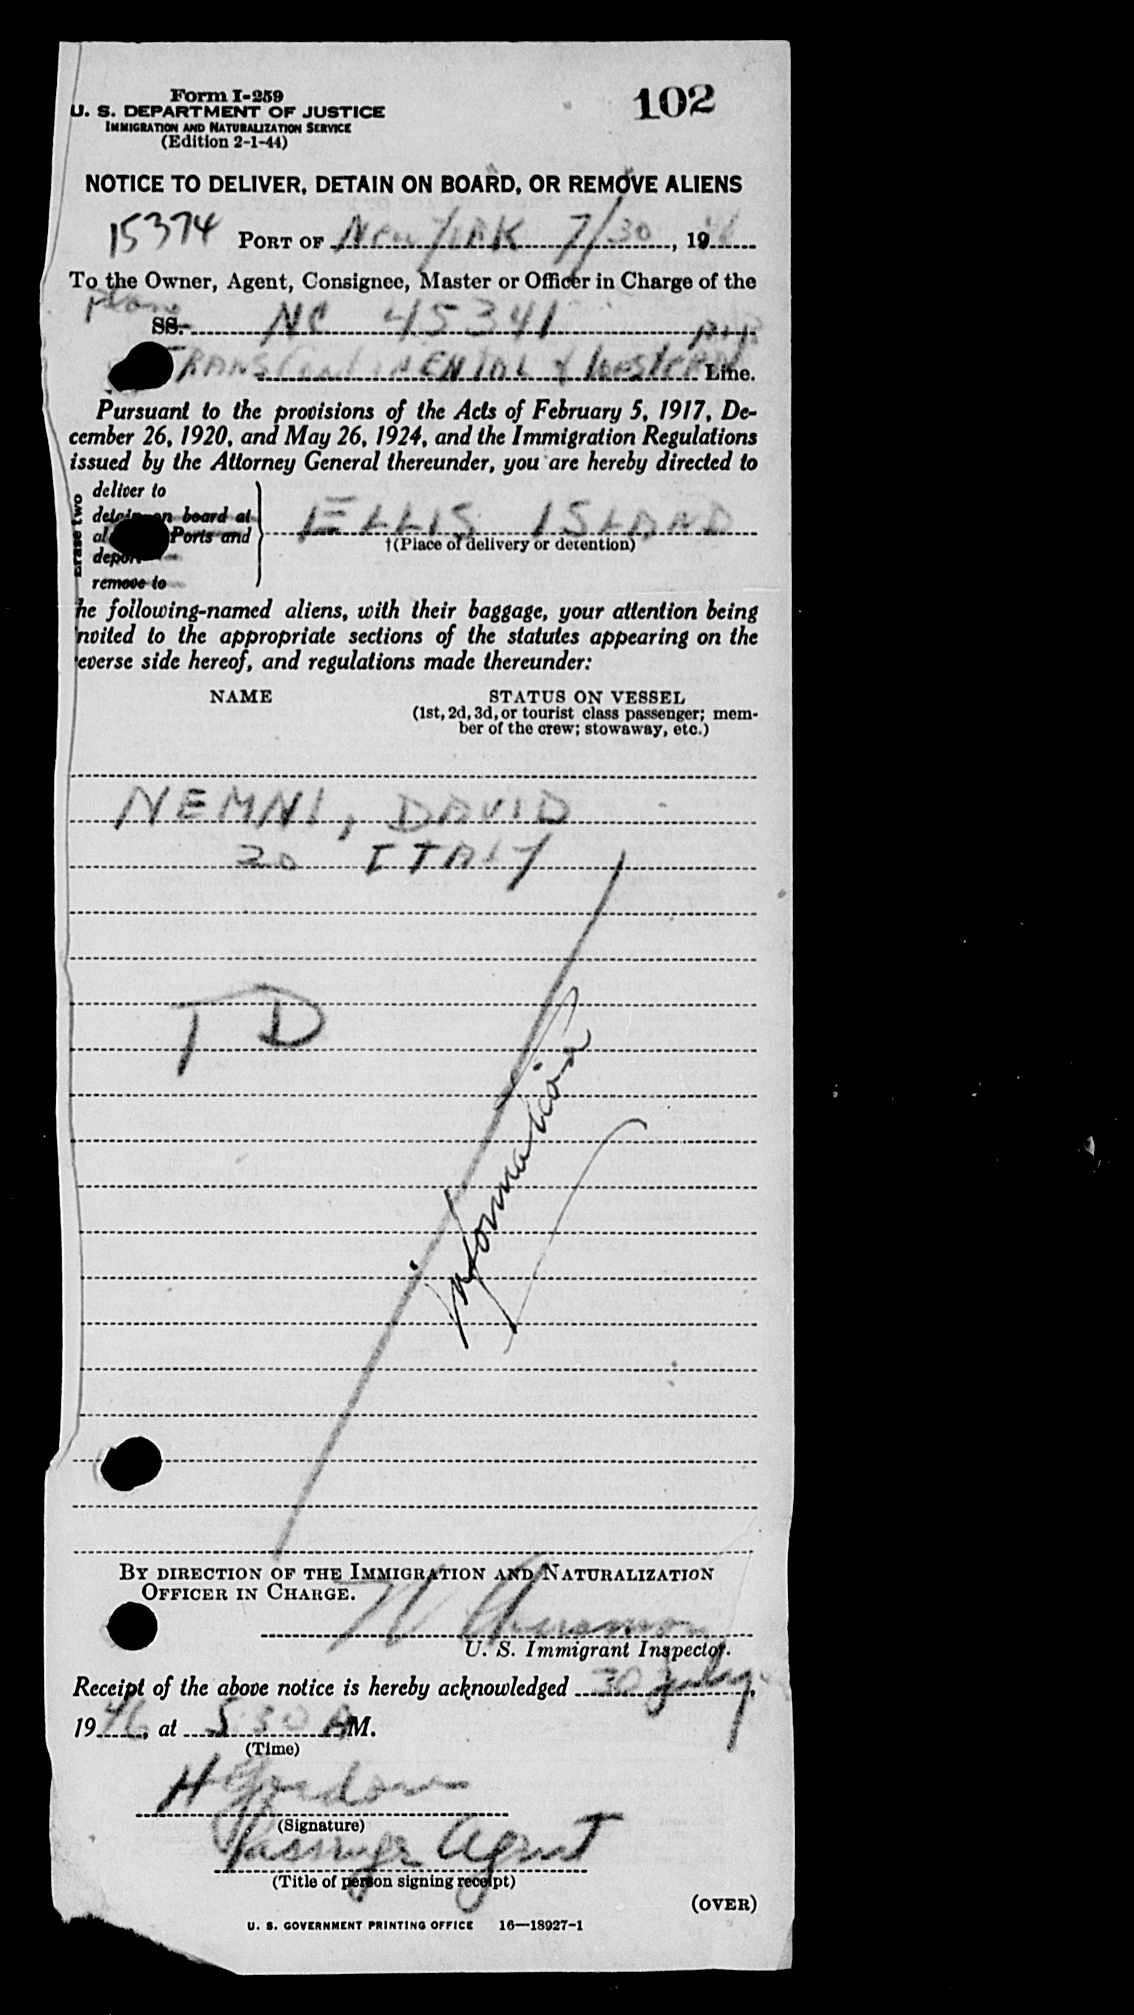 Form I-259
102
U. S. DEPARTMENT OF JUSTICE
IMMIGRATION AND NATURALIZATION SERVICE
(Edition 2-1-44)
NOTICE TO DELIVER, DETAIN ON BOARD, OR REMOVE ALIENS
15374 PORT OF New York 7/30, 19
To the Owner, Agent, Consignee, Master or Officer in Charge of the
Plane
SS. NC 45341
TRANSCONTINENTAL & WESTERN Line.
Pursuant to the provisions of the Acts of February 5, 1917, De-
cember 26, 1920, and May 26, 1924, and the Immigration Regulations
issued by the Attorney General thereunder, you are hereby directed to
Erase two
deliver to
detain on board at
al Ports and
deport
remove to
ELLIS ISLAND
†(Place of delivery or detention)
he following-named aliens, with their baggage, your attention being
nvited to the appropriate sections of the statutes appearing on the
everse side hereof, and regulations made thereunder:
NAME STATUS ON VESSEL
(1st, 2d, 3d, or tourist class passenger; mem-
ber of the crew; stowaway, etc.)
NEMNI, DAVID
20 ITALY
TD
information
BY DIRECTION OF THE IMMIGRATION AND NATURALIZATION
OFFICER IN CHARGE.
U. S. Immigrant Inspector.
Receipt of the above notice is hereby acknowledged 30 July,
1946, at 5:30 AM.
(Time)
H Gordon
(Signature)
Passenger Agent
(Title of person signing receipt)
(OVER)
U. S. GOVERNMENT PRINTING OFFICE 16—18927-1